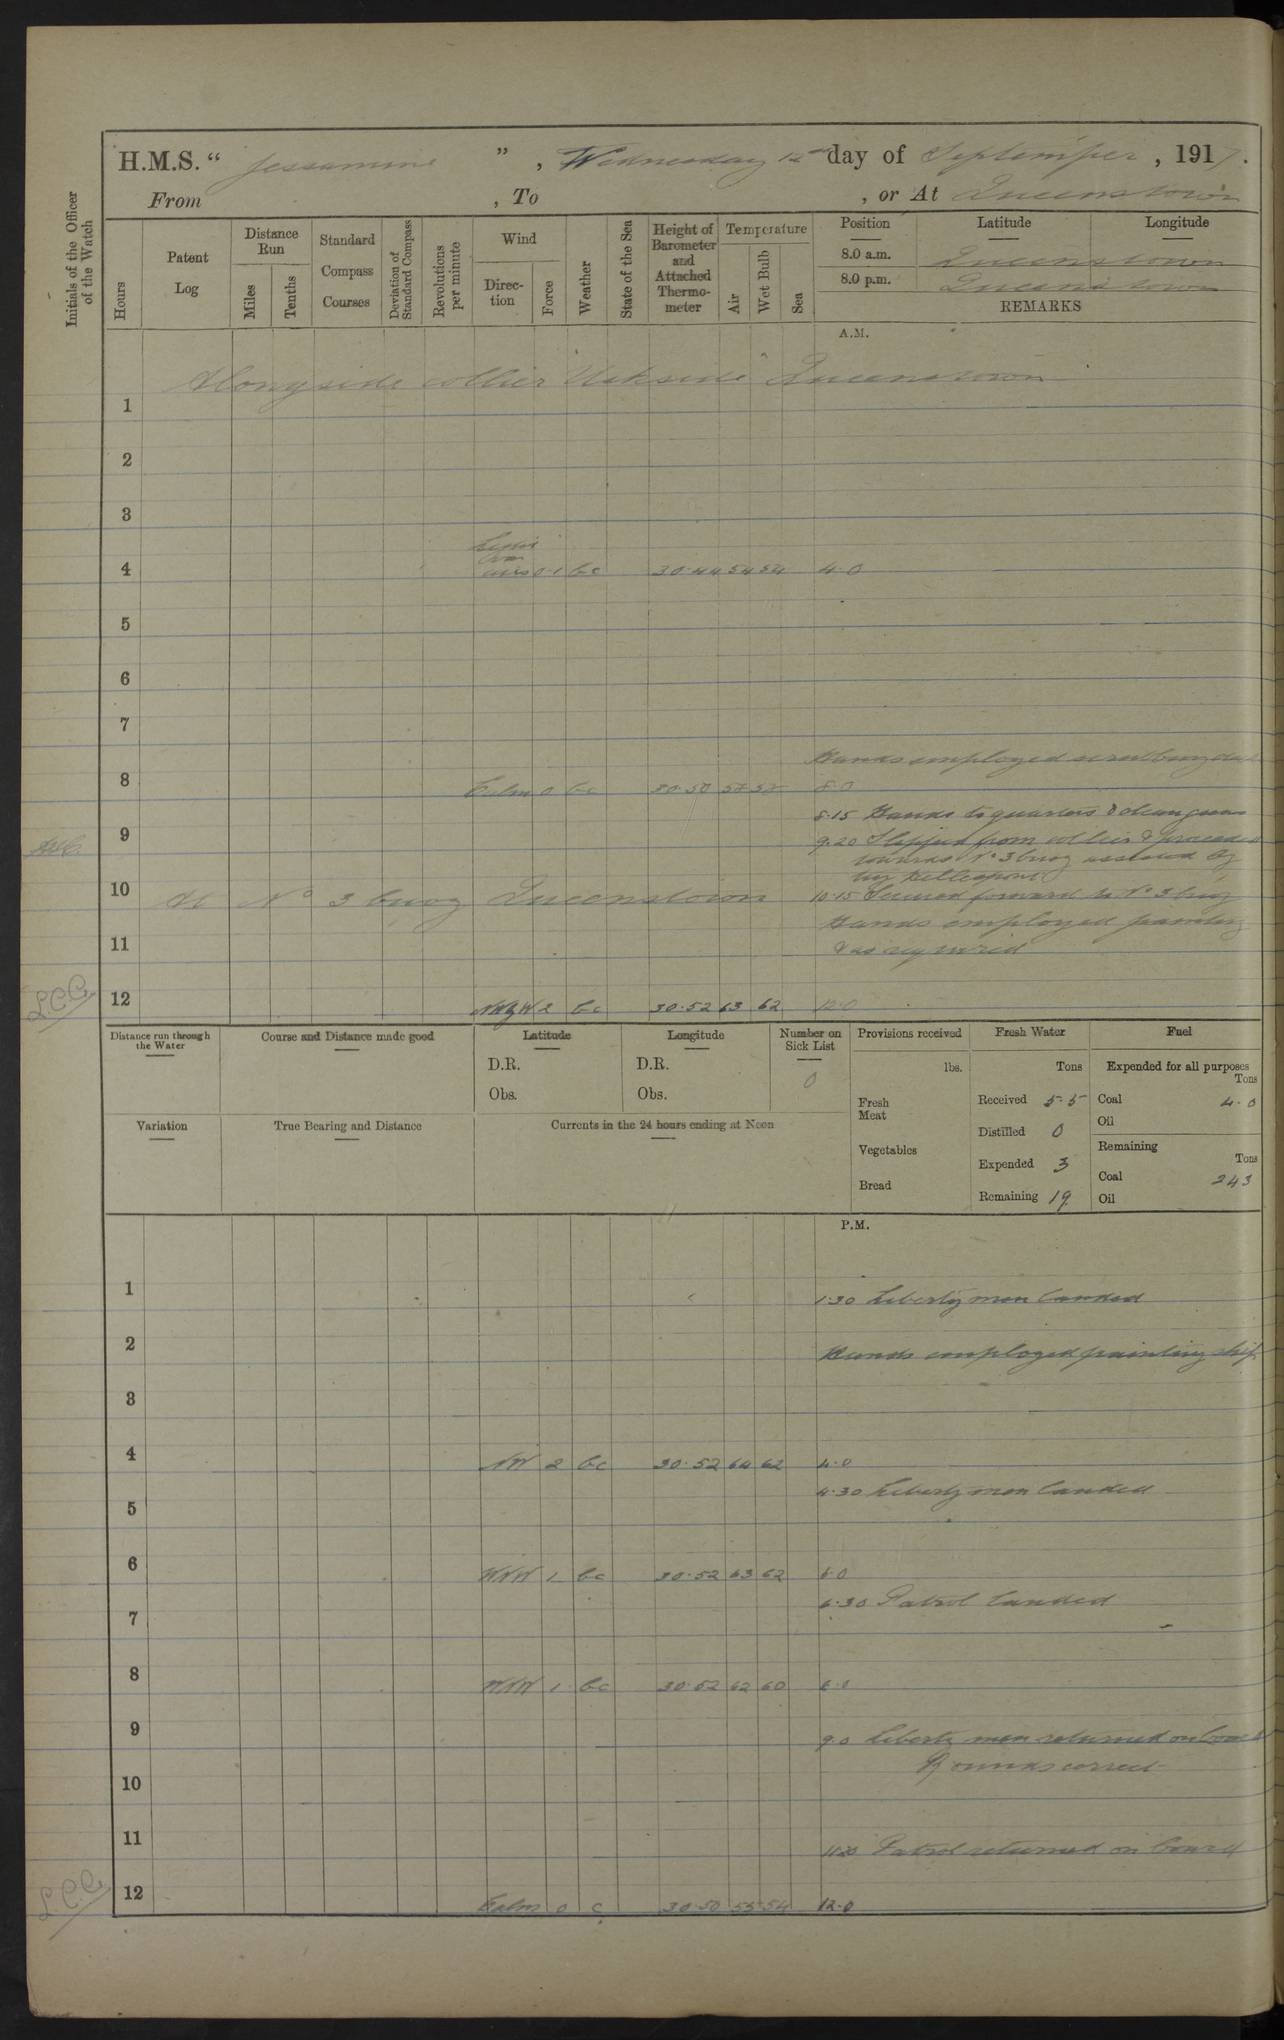 H.M.S. “ Jessamine ” , Wednesday 12th day of September , 1917 .
From , To , or At Queenstown
Initials of the Officer of the Watch
Hours
Patent Log
Distance Run
Miles
Tenths
Standard Compass Courses
Deviation of Standard Compass
Revolutions per minute
Wind
Direction
Force
Weather
State of the Sea
Height of Barometer and Attached Thermometer
Temperature
Air
Wet Bulb
Sea
Position Latitude Longitude
8.0 a.m. Queenstown
8.0 p.m. Queenstown
REMARKS
A.M.
Alongside collier Queenstown
1
2
3
4 Light airs 0-1 bc 30.44 54 54 4.0
5
6
7
Hands employed
8 Calm 0 bc 30.50 57 57 8.0
8.15 Hands to quarters & clean guns
9 9.20 Slipped from collier & proceeded
towards No 3 buoy assisted by
tug Hellespont
10 At No 3 buoy Queenstown 10.15 Secured forward to No 3 buoy
Hands employed painting
11 & as required
L.C.C. 12 NWbyW 2 bc 30.52 63 62 12.0
Distance run through the Water
Course and Distance made good
Latitude
D.R.
Obs.
Longitude
D.R.
Obs.
Number on Sick List
0
Provisions received
lbs.
Fresh Meat
Vegetables
Bread
Fresh Water
Tons
Received 5.5
Distilled 0
Expended 3
Remaining 19
Fuel
Expended for all purposes
Tons
Coal 4.0
Oil
Remaining
Tons
Coal 243
Oil
Variation
True Bearing and Distance
Currents in the 24 hours ending at Noon
P.M.
1 1.30 Liberty men landed
2 Hands employed painting ship
3
4 NW 2 bc 30.52 64 62 4.0
4.30 Liberty men landed
5
6 WNW 1 bc 30.52 63 62 6.0
6.30 Patrol landed
7
8 WNW 1 bc 30.52 62 60
9 9.0 Liberty men returned on board
Rounds correct
10
11 11.20 Patrol returned on board
L.C.C. 12 Calm 0 c 30.50 55 54 12.0